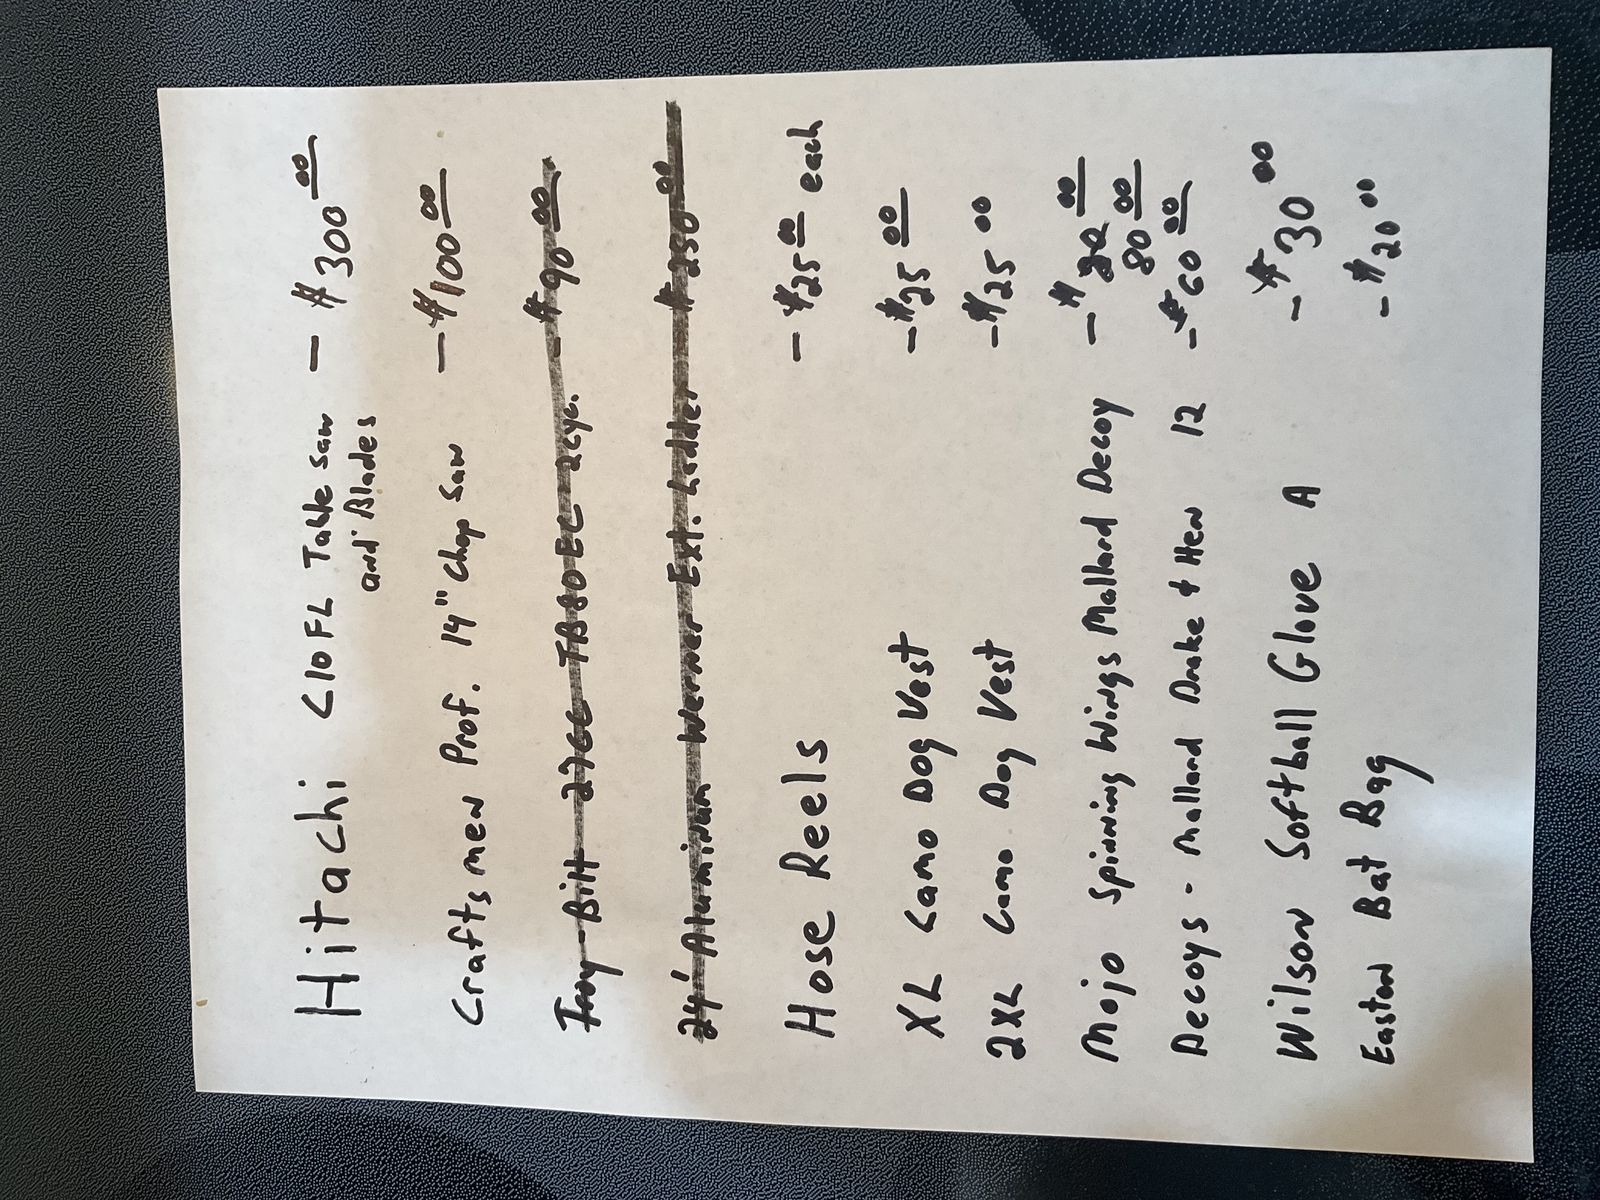 Hitachi C10FL Table Saw and Blades — $300.00
Craftsmen Prof. 14" Chop Saw — $100.00
Troy-Bilt 27cc TB80EC 2cyc. - $90.00
24' Aluminum Werner Ext. Ladder $250.00
Hose Reels - $25.00 each
XL Camo Dog Vest - $25.00
2XL Camo Dog Vest - $25.00
Mojo Spinning Wings Mallard Decoy - $ 80.00
Decoys - Mallard Drake & Hen 12 - $60.00
Wilson Softball Glove A - $30.00
Easton Bat Bag - $20.00